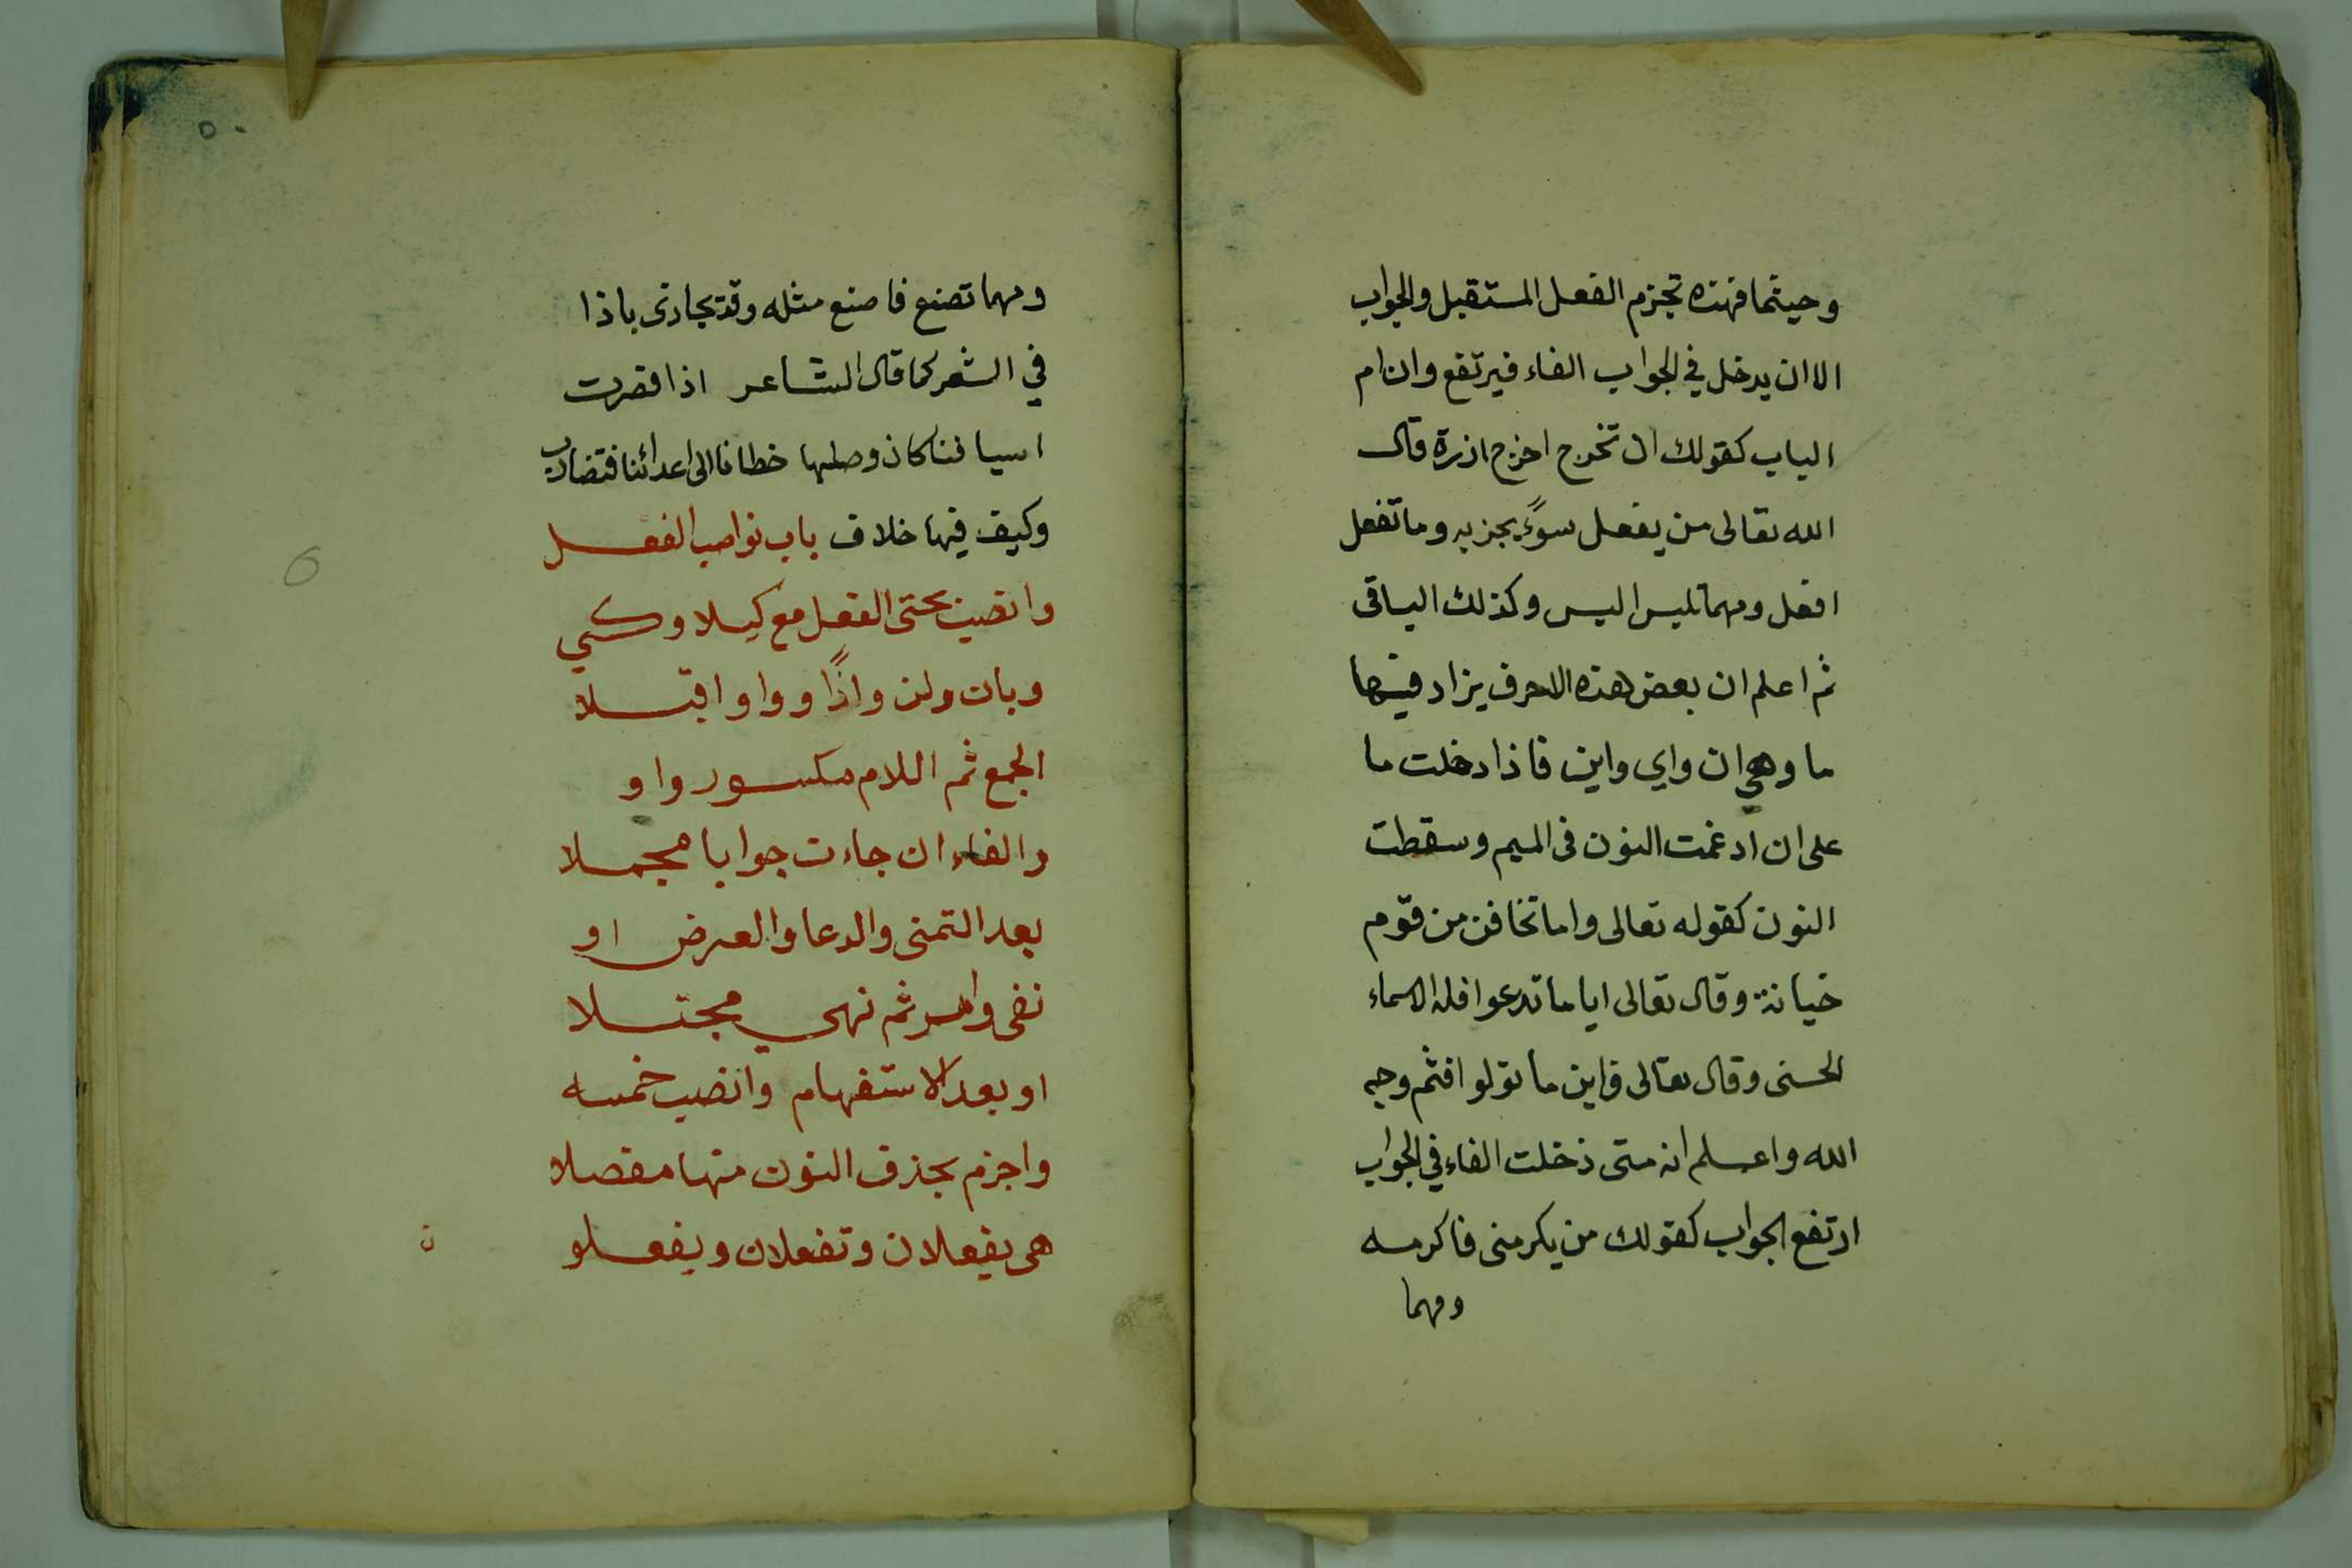 وحيثما فهذه تجزم الفعل المستقبل والجواب
الا ان يدخل في الجواب الفاء فيرتفع وان ام
الباب كقولك ان تخرج اخرج اذرة قال
الله تعالى من يفعل سوءً يجز به وما تفعل
افعل ومهما تلبس البس وكذلك الباقى
ثم اعلم ان بعض هذه الاحرف يزاد فيها
ما وهي ان واي واين فاذا دخلت ما
على ان ادغمت النون فى الميم وسقطت
النون كقوله تعالى واما تخافن من قوم
خيانة وقال تعالى ايا ما تدعوا فله الاسماء
الحسنى وقال تعالى فاين ما تولوا فثم وجه
الله واعلم انه متى دخلت الفاء في الجواب
ارتفع الجواب كقولك من يكرمنى فاكرمه
ومهما
٥٠
ومهما تصنع فاصنع مثله وقد تجازى باذا
في الشعر كما قال الشاعر اذا قصرت
اسيافنا كان وصلها خطانا الى اعدائنا فتضارب
وكيف فيها خلاف باب نواصب الفعل
وانصبن بحتى الفعل مع كيلا وكي
وبان ولن واذًا وواو اقبلا
الجمع ثم اللام مكسور واو
والفاء ان جاءت جوابا مجملا
بعد التمنى والدعا والعرض او
نفى وامر ثم نهى مجتلا
او بعد الاستفهام وانصب خمسه
واجزم بحذف النون منها مفصلا
هى يفعلان وتفعلان ويفعلو
ن